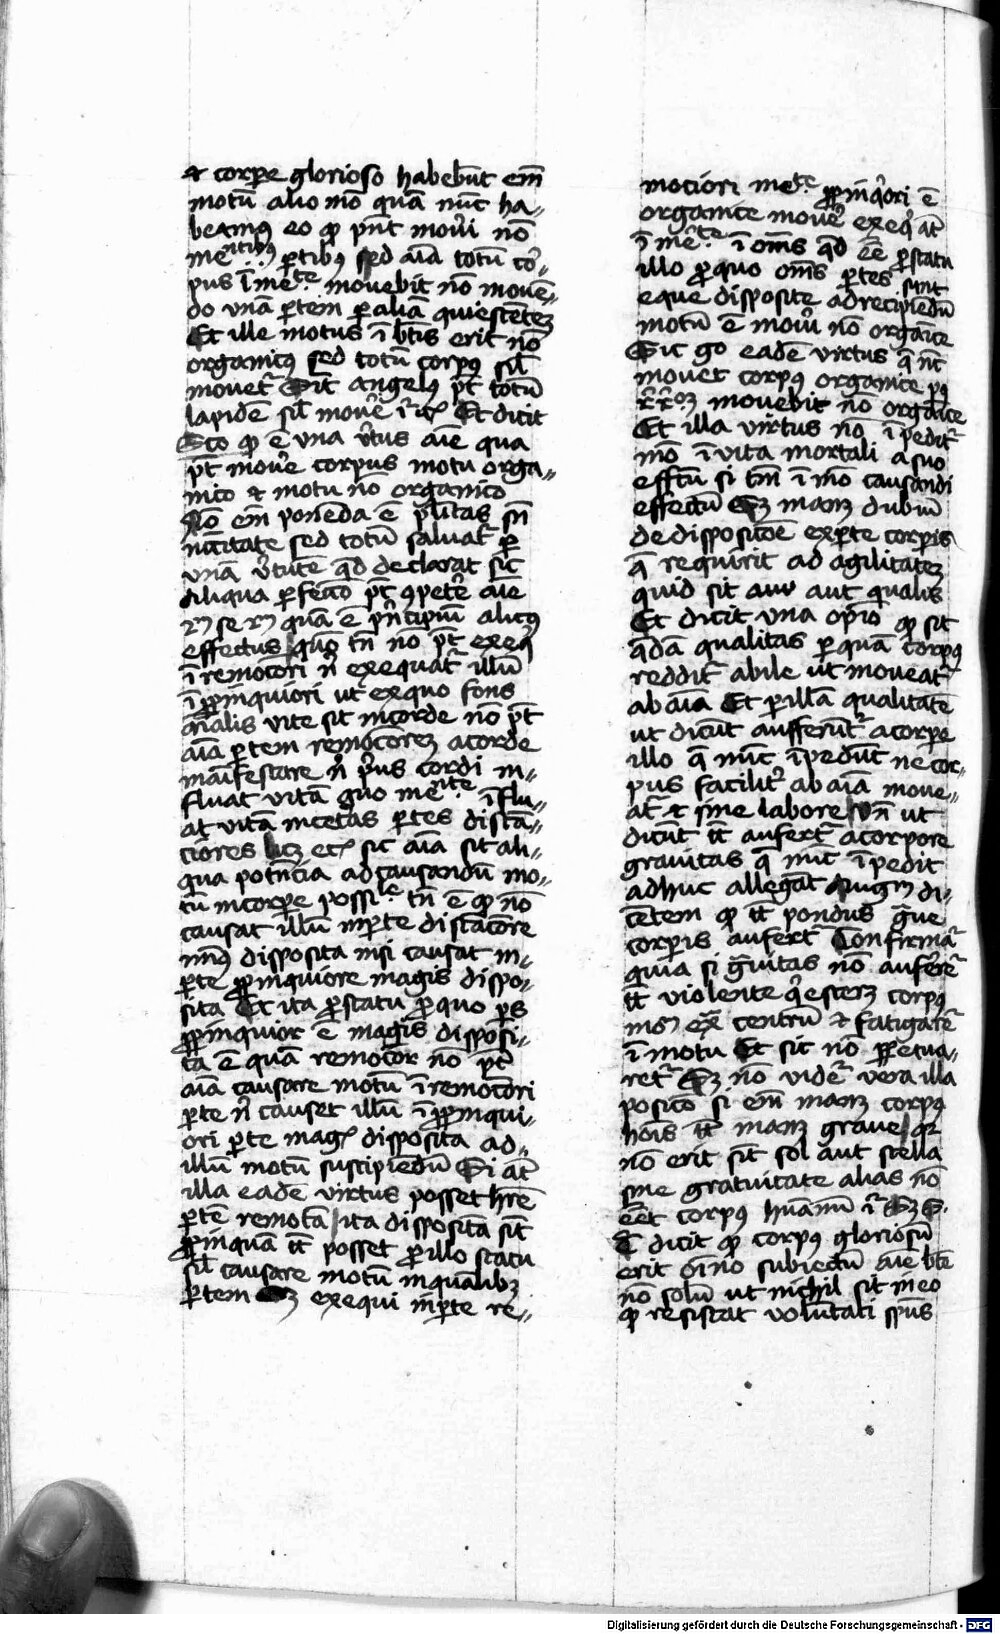 et corpe glorioso habebūt em̄
motū alio mō quā nūc ha-
beamus eo qp pn̄t moūi nō
mētibus ptibus sed aīa totū cor-
pus īmēte movebit nō movē-
do unā ptem p aliā quiescētez
Et ille motus ī btīs erit nō
organicus sed totū corpus sil̄
movet᷑ Sic᷑ angelus pt̄ totū
lapidē sil̄ movēr Et dicit
Sco qp ē una v̄tus aīe qua
pt̄ movēr corpus motu orga-
nico et motu nō organico
Nō em̄ ponēda ē pl̄itas sn̄
nēcitate sed totū saluat᷑ p
unā v̄tutē qd declarat sic
aliqua pfectō pt̄ ɔpetēr aīe
quā ē pn̄cipiū alicus
effectus quō tn̄ no pt̄ exeq̄
ī remocori n̄ exequat᷑ illū
ī ppinquiori ut ex quo fons
aīalis vite sit in corde nō pt̄
aīa ptem remocorez a corde
māifestare n̄ pus cordi in-
fluat vitā īflu-
at vitā in cetas ptes distā-
ciores licz etc sic aīa sit ali-
qua potn̄cia ad causandū mo-
tū in corpe possile tn̄ ē qp nō
causat illū in pte distācōre
min᷒ disposita nisi causat in
pte ppinquiore magis dispo-
sita Et ita p statu p quo ps
ppinquior ē magis disposi-
ta ē quā remocor no pt̄
aīa causare motū ī remocori
pte n̄ causet illū ī ppinqui-
ori pte mag᷒ disposita ad
illū motū suscipiēdū Si at̄
illa eadē virtus posset hr̄e
ptē remotā ita dispositā sic̄
ppinquā tc̄ posset p illo statu
sil̄ causare motū in qualibz
ptem exequi in pte re-
mociori ppinqori ē
organice movēr exeq̄ at̄
ī mēte ī om̄s qd ēē p statu
illo p quo om̄s ptes sunt
eque disposite ad recipiēdū
motū ē moūi nō organice
Sic go eadē virtus q̄ nc̄
movet corpus organice pus
movebit nō organice
Et illa virtus nō īpedit᷑
mō ī vita mortali a suo
effctū si tm̄ ī mō causandi
effectū Sz manz dubiū
de dispositōe ex pte corpis
q̄ requirit ad agilitatez
quid sit aut qualis
Et dicit una opio qp sit
qdā qualitas p quā corpus
reddit᷑ abile ut moveat᷑
ab aīa Et p illā qualitatē
ut dicūt aufferūt᷑ a corpe
illo q̄ nūc īpediūt ne cor-
pus facilit᷑ ab aīa move-
at᷑ et sine labore Un̄ ut
dicūt tc̄ aufert᷑ a corpore
gravitas q̄ nūc īpedit
adhuc allegāt Augn̄ di-
cētem qp tc̄ pondus gūe
corpis aufert᷑ Confirmā᷑
quia si gūitas nō auferēt᷑
tc̄ violente q̄escerz corpus
ex̄ centrū et fatigarēt᷑
ī motu Et sic nō ppetua-
ret᷑ Sz nō vidēt᷑ vera illa
positō si em̄ manz corpus
hoīs tc̄ manz grave qr
nō erit sic̄ sol aut stella
sine gratuitate alias nō
eēt corpus humanū
dicit qp corpus gloriosū
erit oīno subiectū aīe btē
nō solū ut nichil sit in eo
qp resistat volūtati spūs
Digitalisierung gefördert durch die Deutsche Forschungsgemeinschaft - DFG